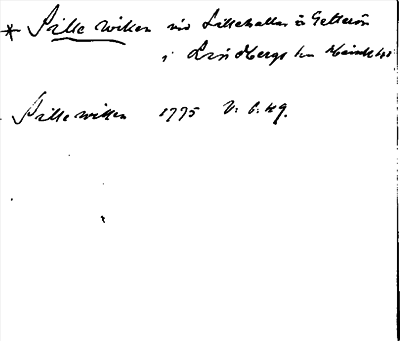 * Sille wiken vid Lillehallen å Getterön
i Lindbergs sn
Sillewiken 1775 V: 6: 49.